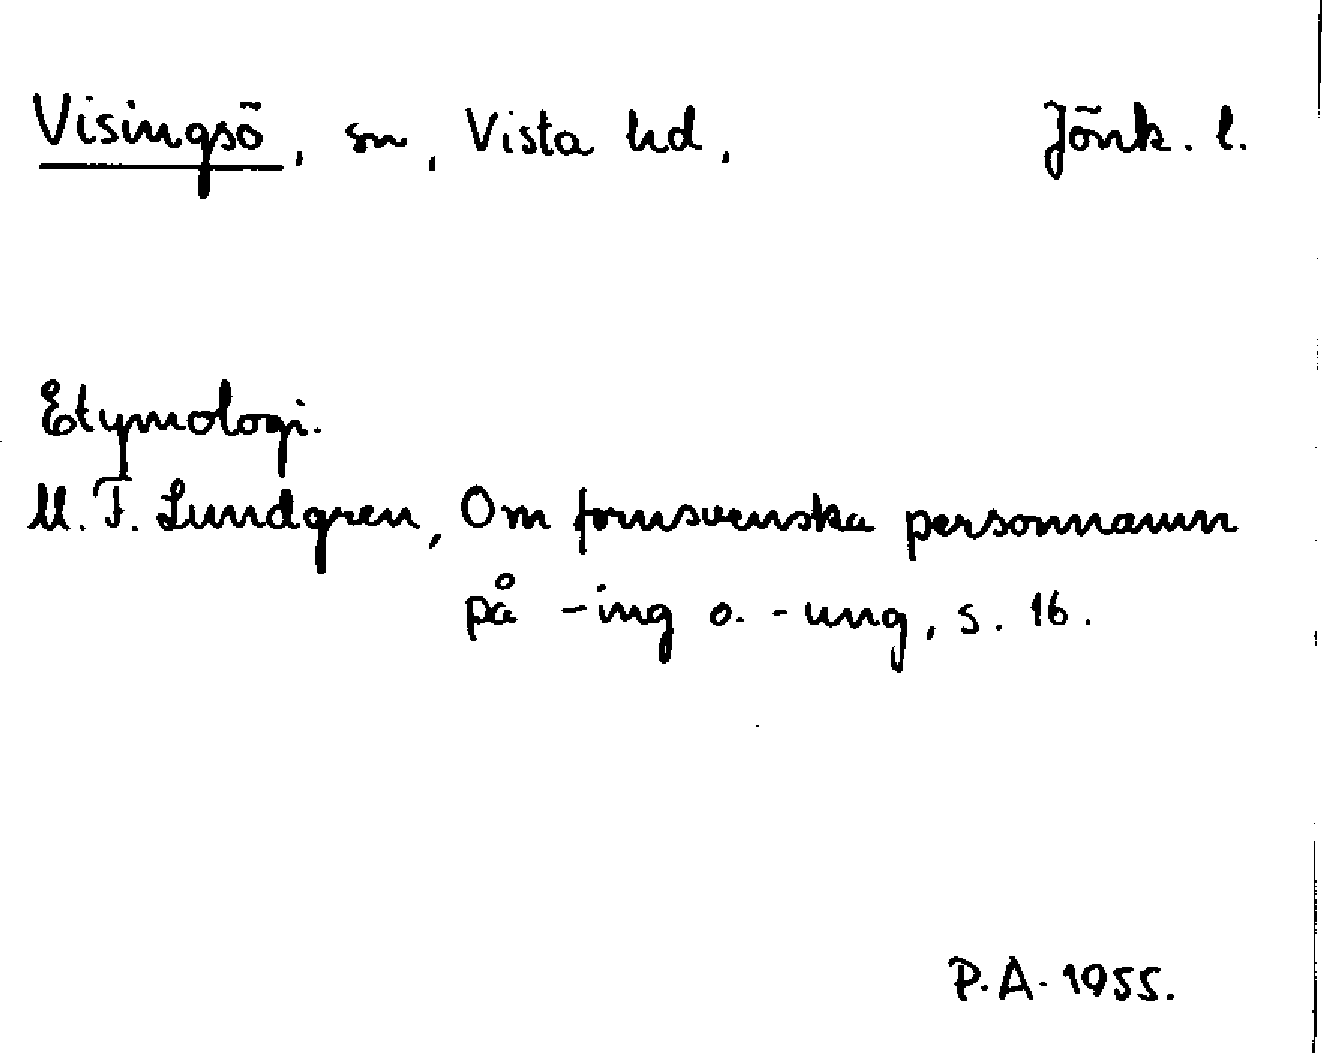 Visingsö, sn, Vista hd, Jönk. l.
Etymologi.
M. F. Lundgren, Om fornsvenska personnamn
på -ing o. -ung, s. 16.
P.A. 1955.